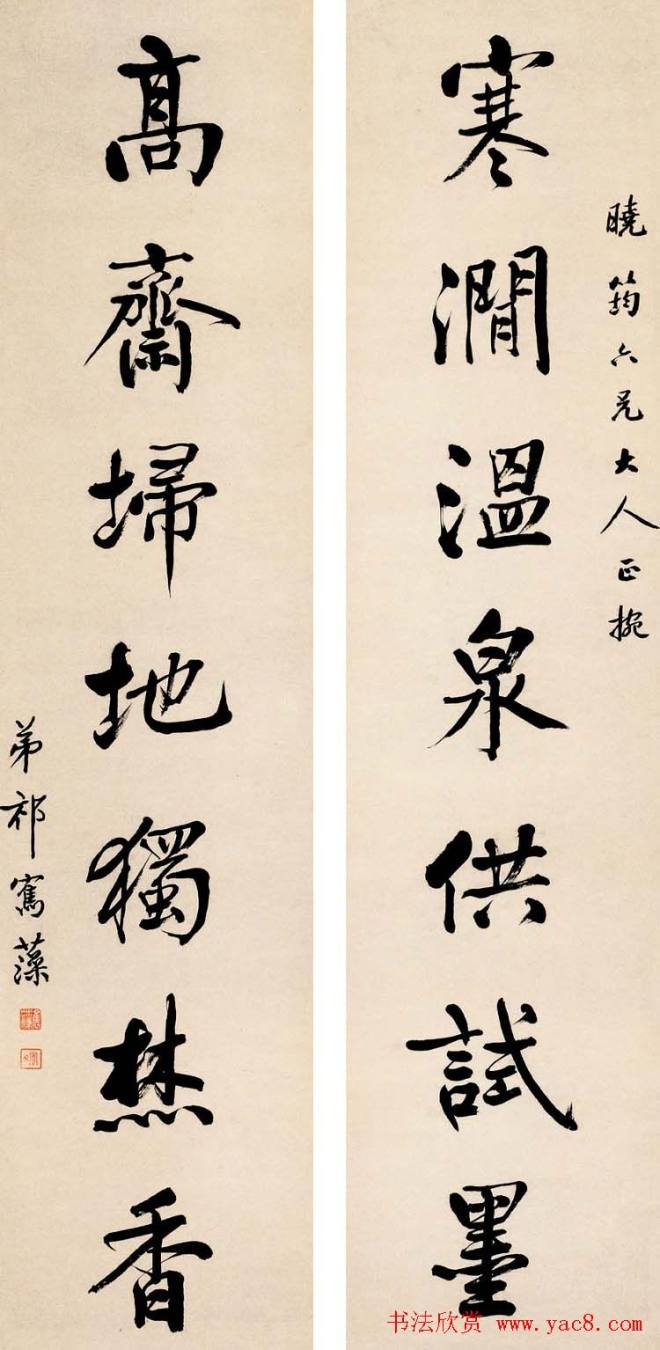 曉筠六兄大人正捥
寒澗温泉供試墨
高齋埽地獨焚香
弟祁寯藻
书法欣赏 www.yac8.com